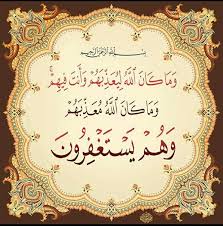 بسم الله الرحمن الرحيم
وَمَا كَانَ اللَّهُ لِيُعَذِّبَهُمْ وَأَنتَ فِيهِمْ ۚ
وَمَا كَانَ اللَّهُ مُعَذِّبَهُمْ
وَهُمْ يَسْتَغْفِرُونَ